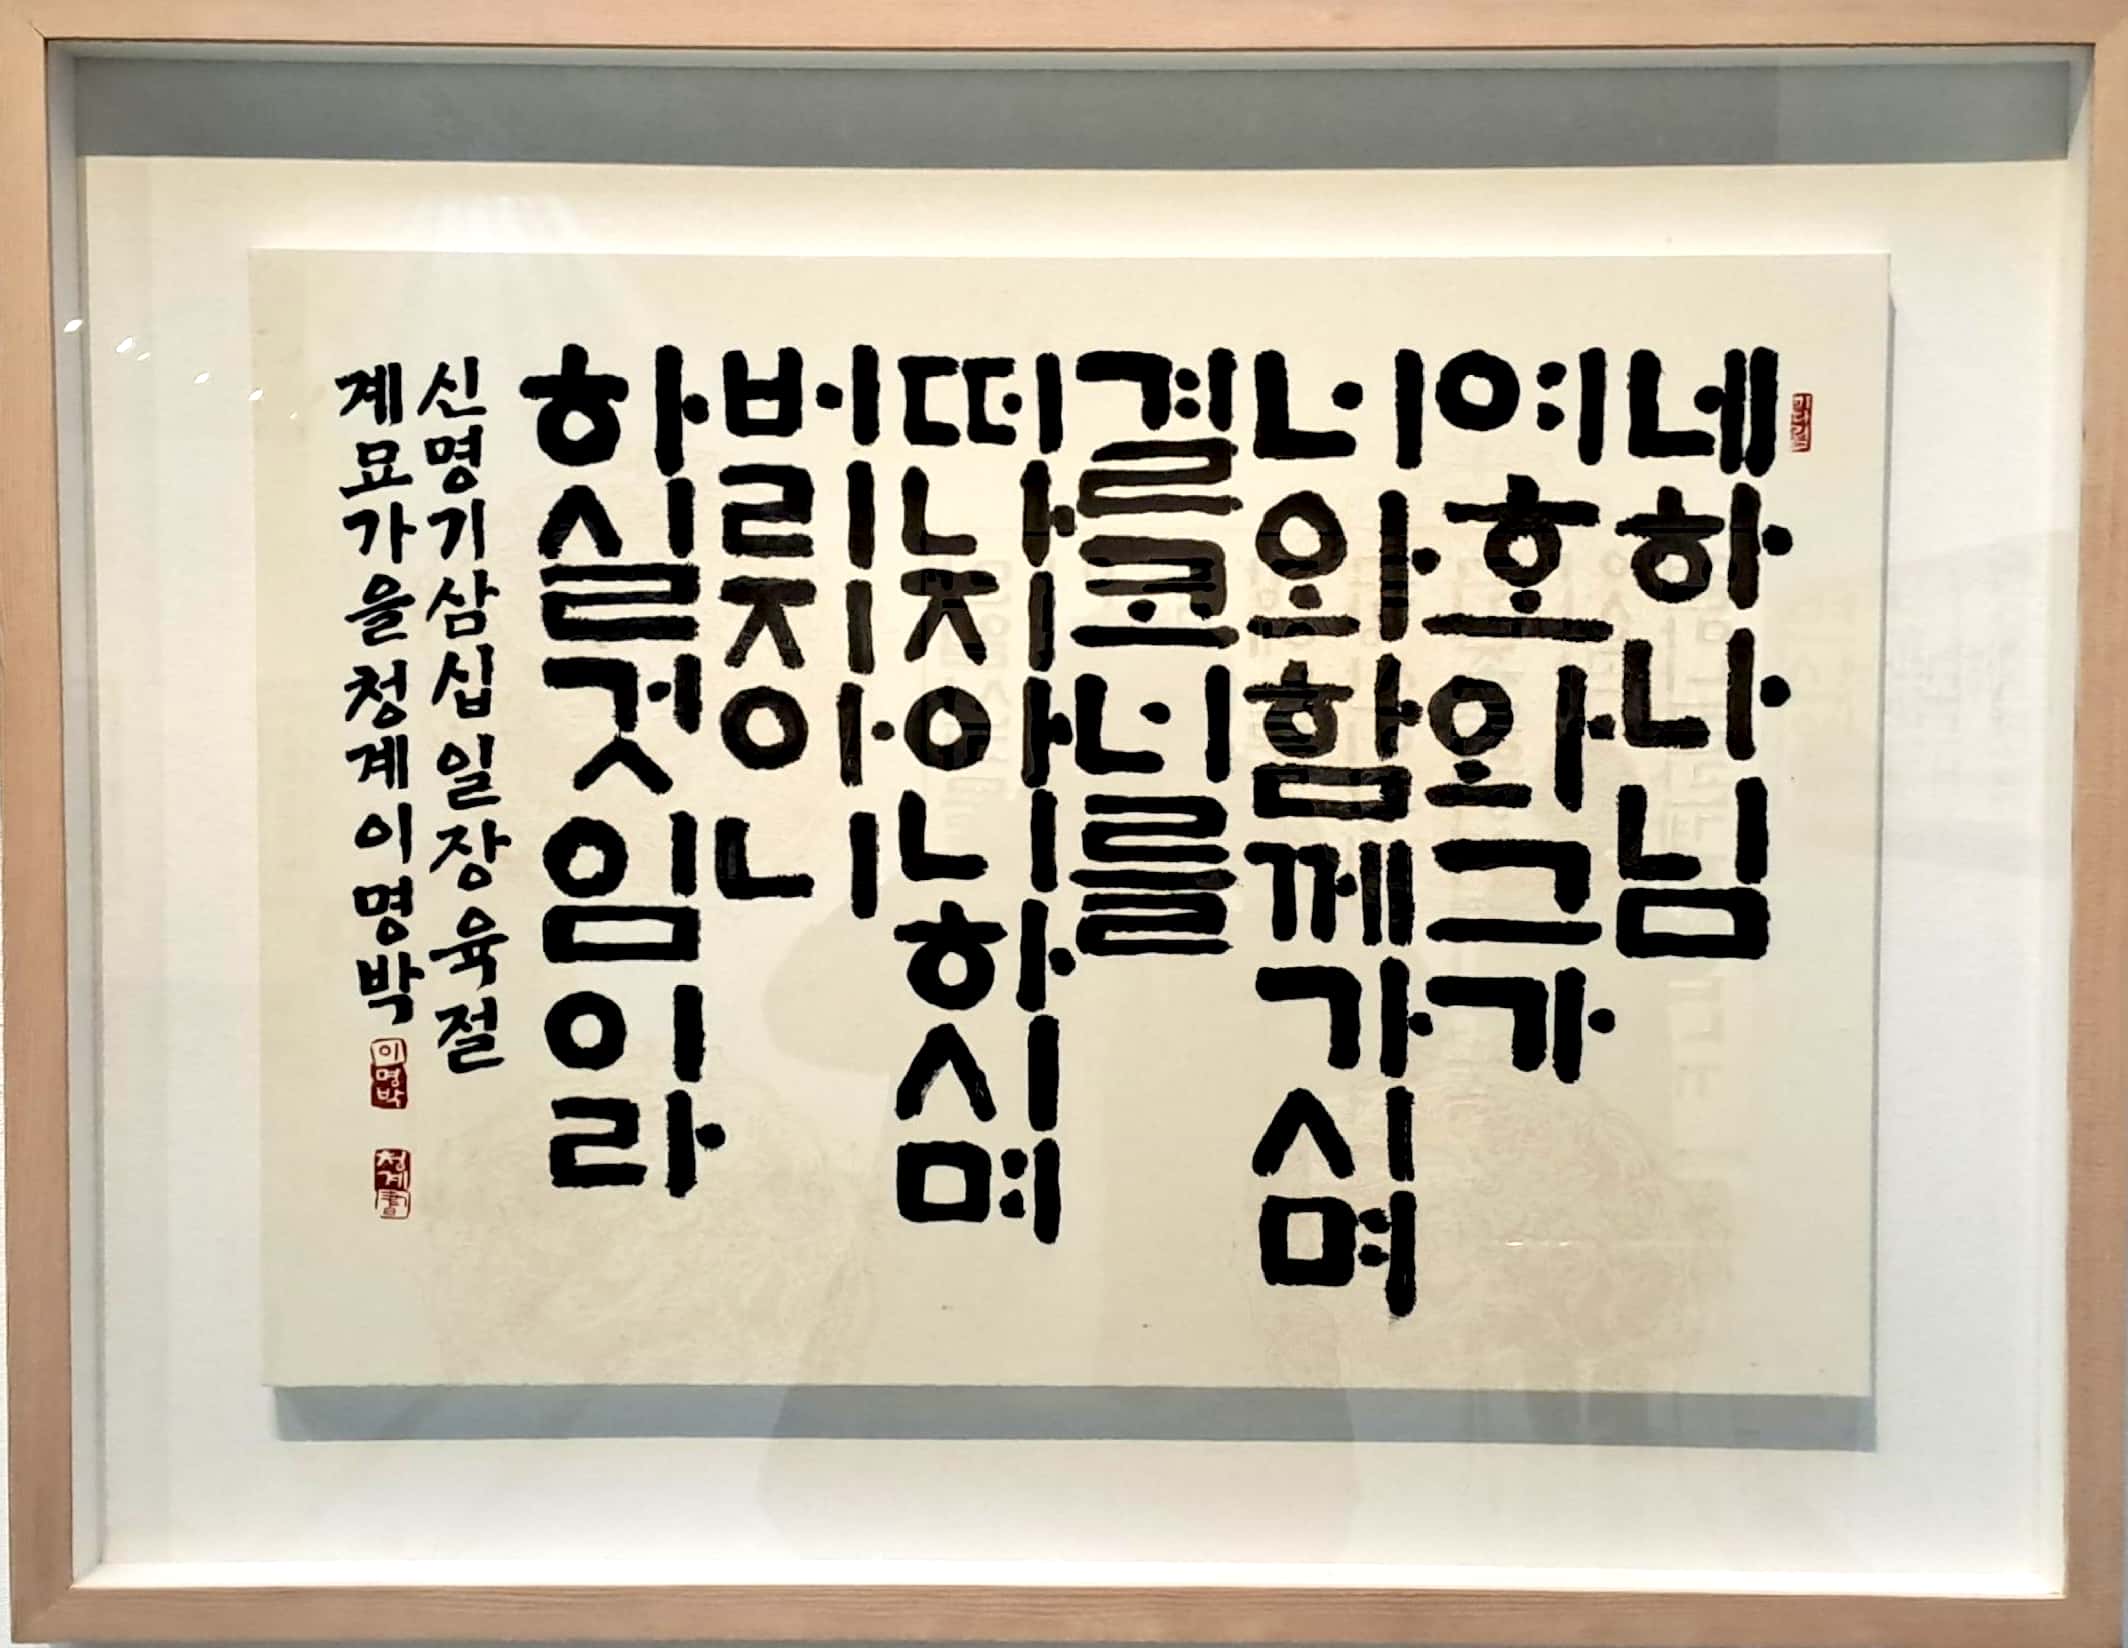 네하나님
여호와그가
너와함께가시며
결코너를
떠나지아니하시며
버리지아니
하실것임이라
신명기삼십일장육절
계묘가을청계이명박
이명박
청계